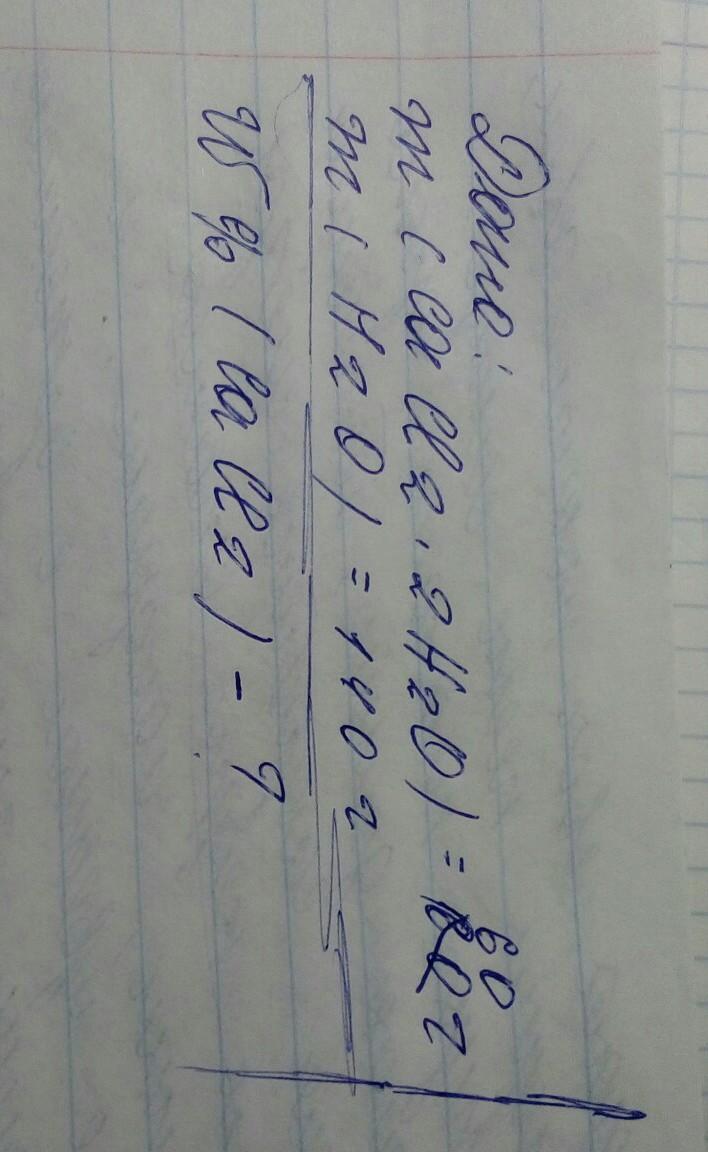 Дано:
m (CaCl2 · 2H2O) = 60 г
m (H2O) = 140 г
W % (CaCl2) - ?